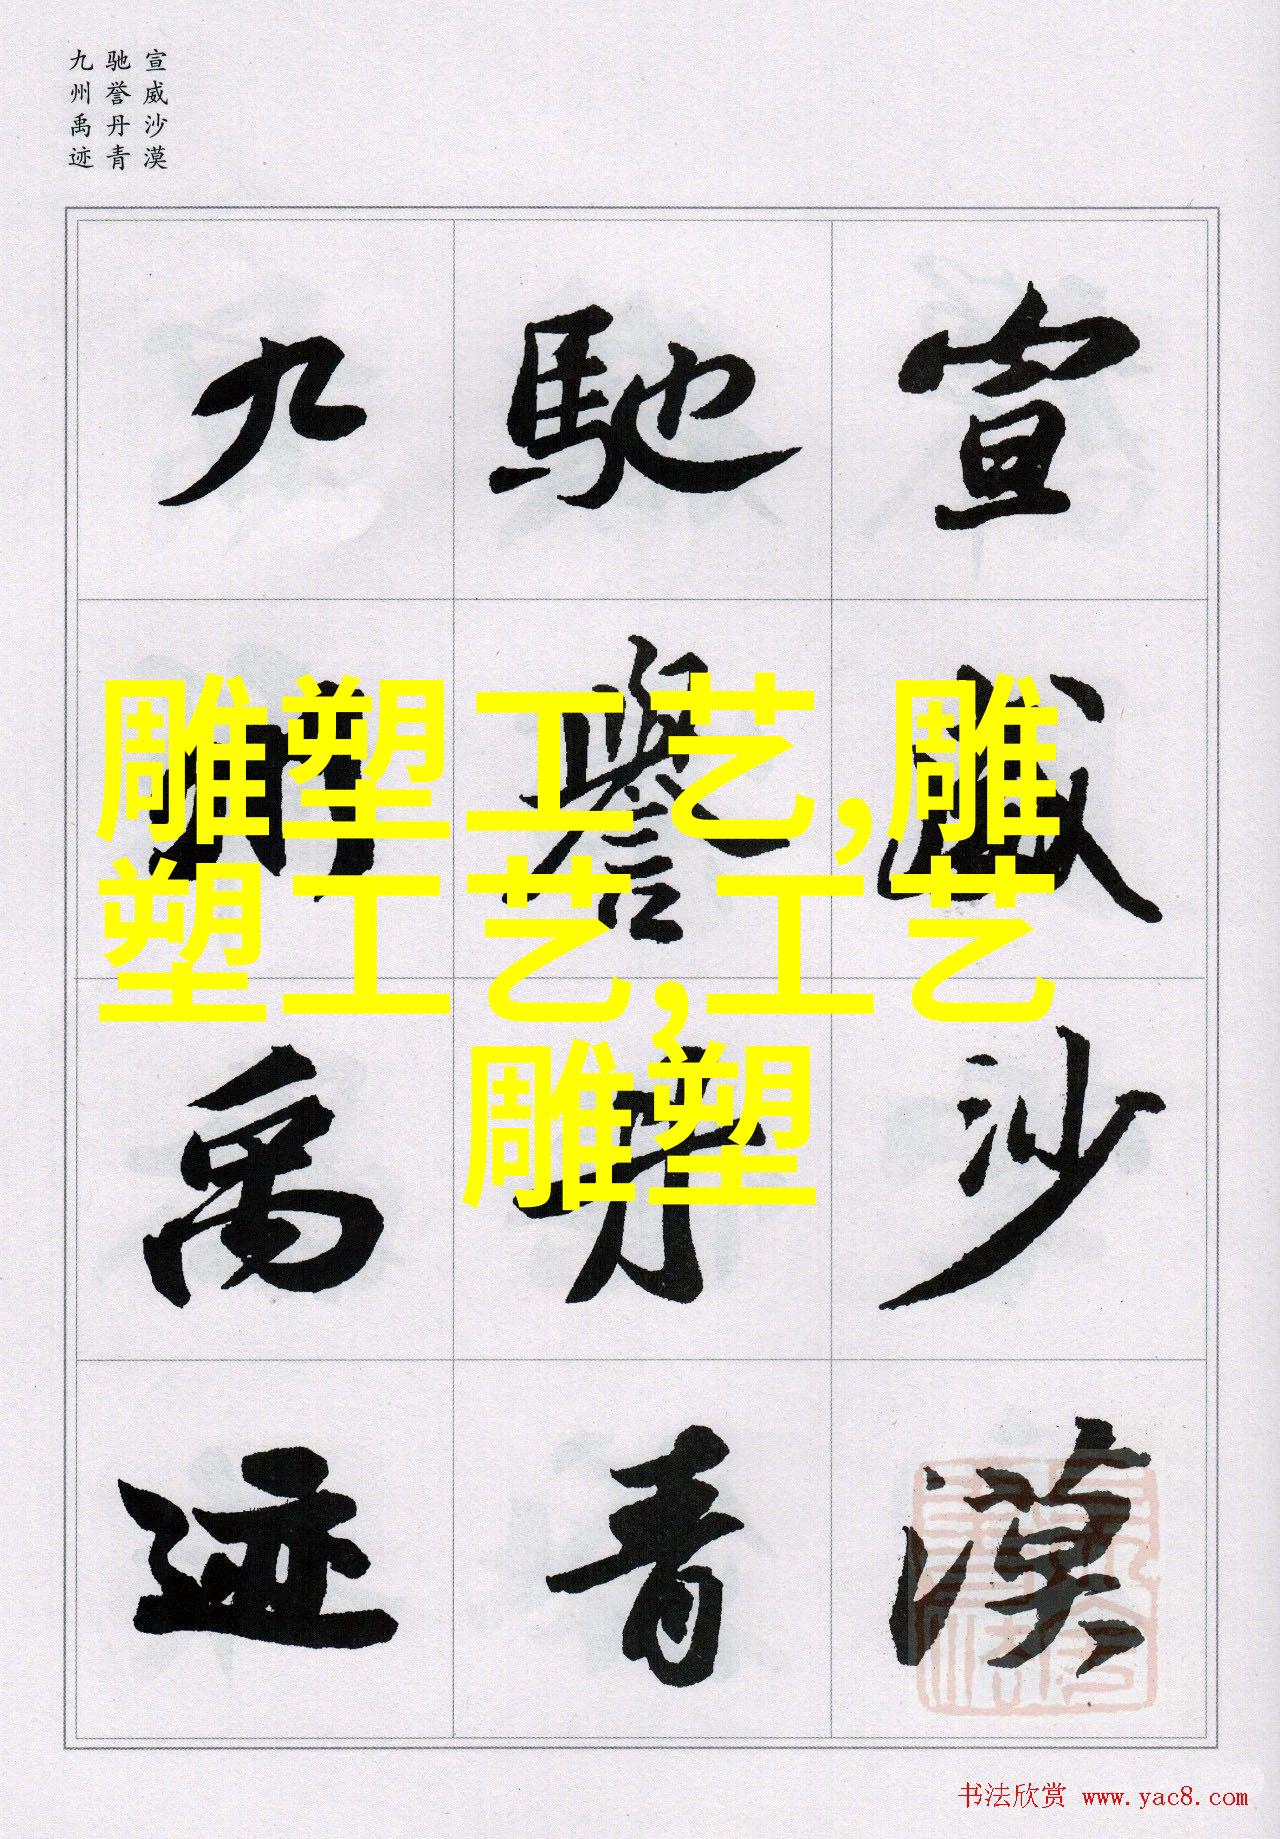 宣威沙漠
驰誉丹青
九州禹迹
宣威沙漠
馳譽丹青
九州禹迹
雕塑工艺,雕
塑工艺,工艺
雕塑
书法欣赏 www.yac8.com